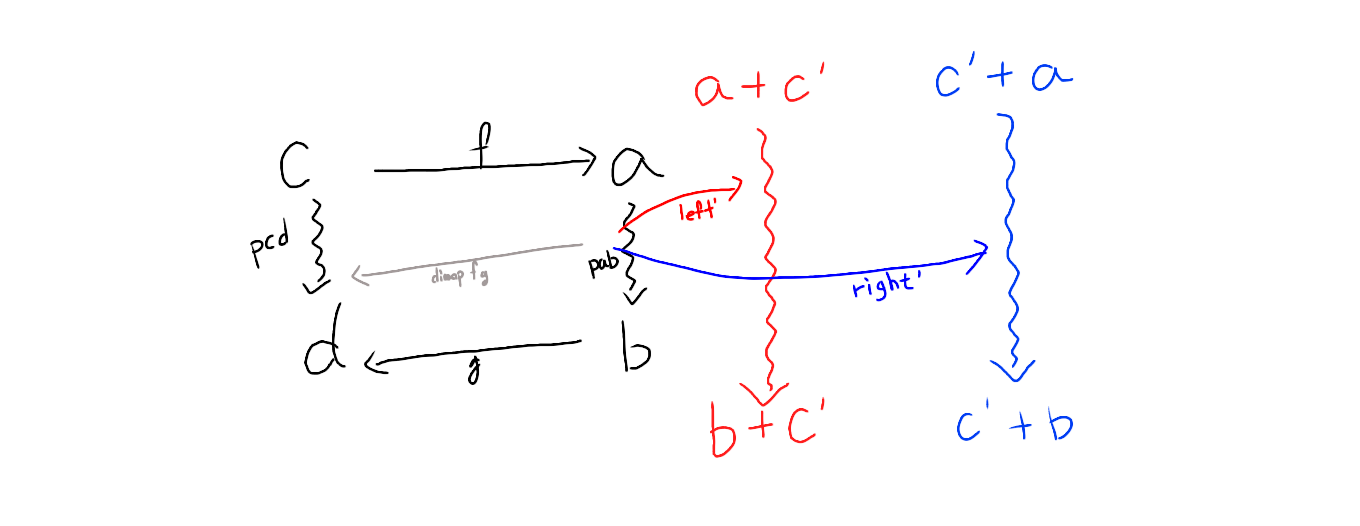 a + c' c' + a
c f a
left'
pcd
dimap f g pab
right'
d g b
b + c' c' + b